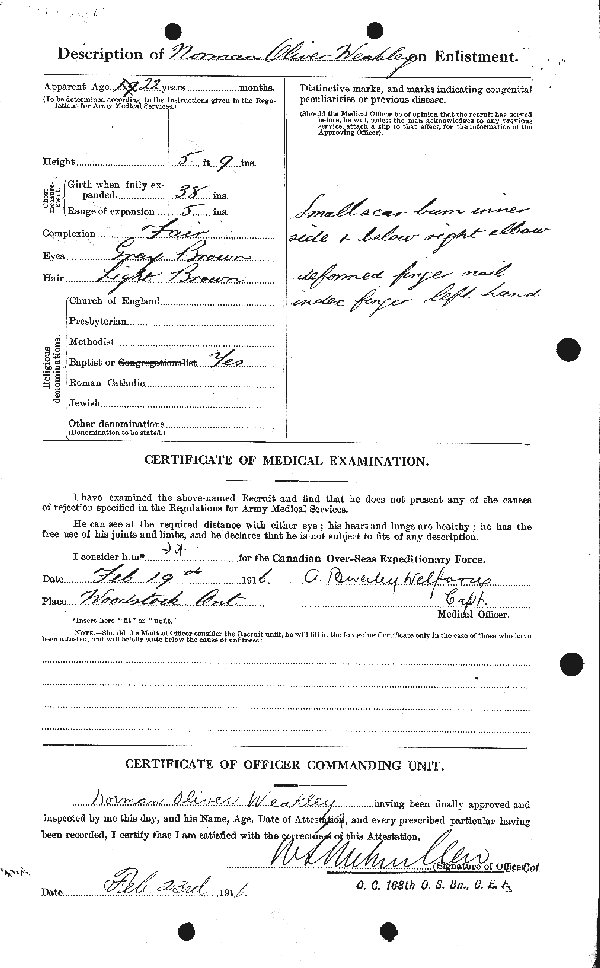 Description of Norman Oliver Weakley on Enlistment.
Apparent Age 22 years months.
(To be determined according to the instructions given in the Regulations for Army Medical Services.)
Distinctive marks, and marks indicating congenital
peculiarities or previous disease.
(Should the Medical Officer be of opinion that the recruit has served
before, he will, unless the man acknowledges to any previous
service, attach a slip to that effect, for the information of the
Approving Officer).
Height 5 ft. 9 ins.
Chest measurement
Girth when fully expanded 38 ins.
Range of expansion 5 ins.
Complexion Fair
Eyes Gray Brown
Hair Light Brown
Small scar burn inner
side & below right elbow
deformed finger nail
index finger left hand
Religious denominations.
Church of England
Presbyterian
Methodist
Baptist or Congregationalist Yes
Roman Catholic
Jewish
Other denominations
(Denomination to be stated.)
CERTIFICATE OF MEDICAL EXAMINATION.
I have examined the above-named Recruit and find that he does not present any of the causes
of rejection specified in the Regulations for Army Medical Services.
He can see at the required distance with either eye; his heart and lungs are healthy; he has the
free use of his joints and limbs, and he declares that he is not subject to fits of any description.
I consider him* fit for the Canadian Over-Seas Expeditionary Force.
Date Feb 19 1916.
Place Woodstock Ont
Capt.
Medical Officer.
*Insert here "fit" or "unfit."
NOTE.—Should the Medical Officer consider the Recruit unfit, he will fill in the foregoing Certificate only in the case of those who have
been attested, and will briefly state below the cause of unfitness:
CERTIFICATE OF OFFICER COMMANDING UNIT.
Norman Oliver Weakley having been finally approved and
inspected by me this day, and his Name, Age, Date of Attestation, and every prescribed particular having
been recorded, I certify that I am satisfied with the correctness of this Attestation.
(Signature of Officer) Col
O. C. 168th O. S. Bn., C. E. F.
Date Feb 23rd 1916